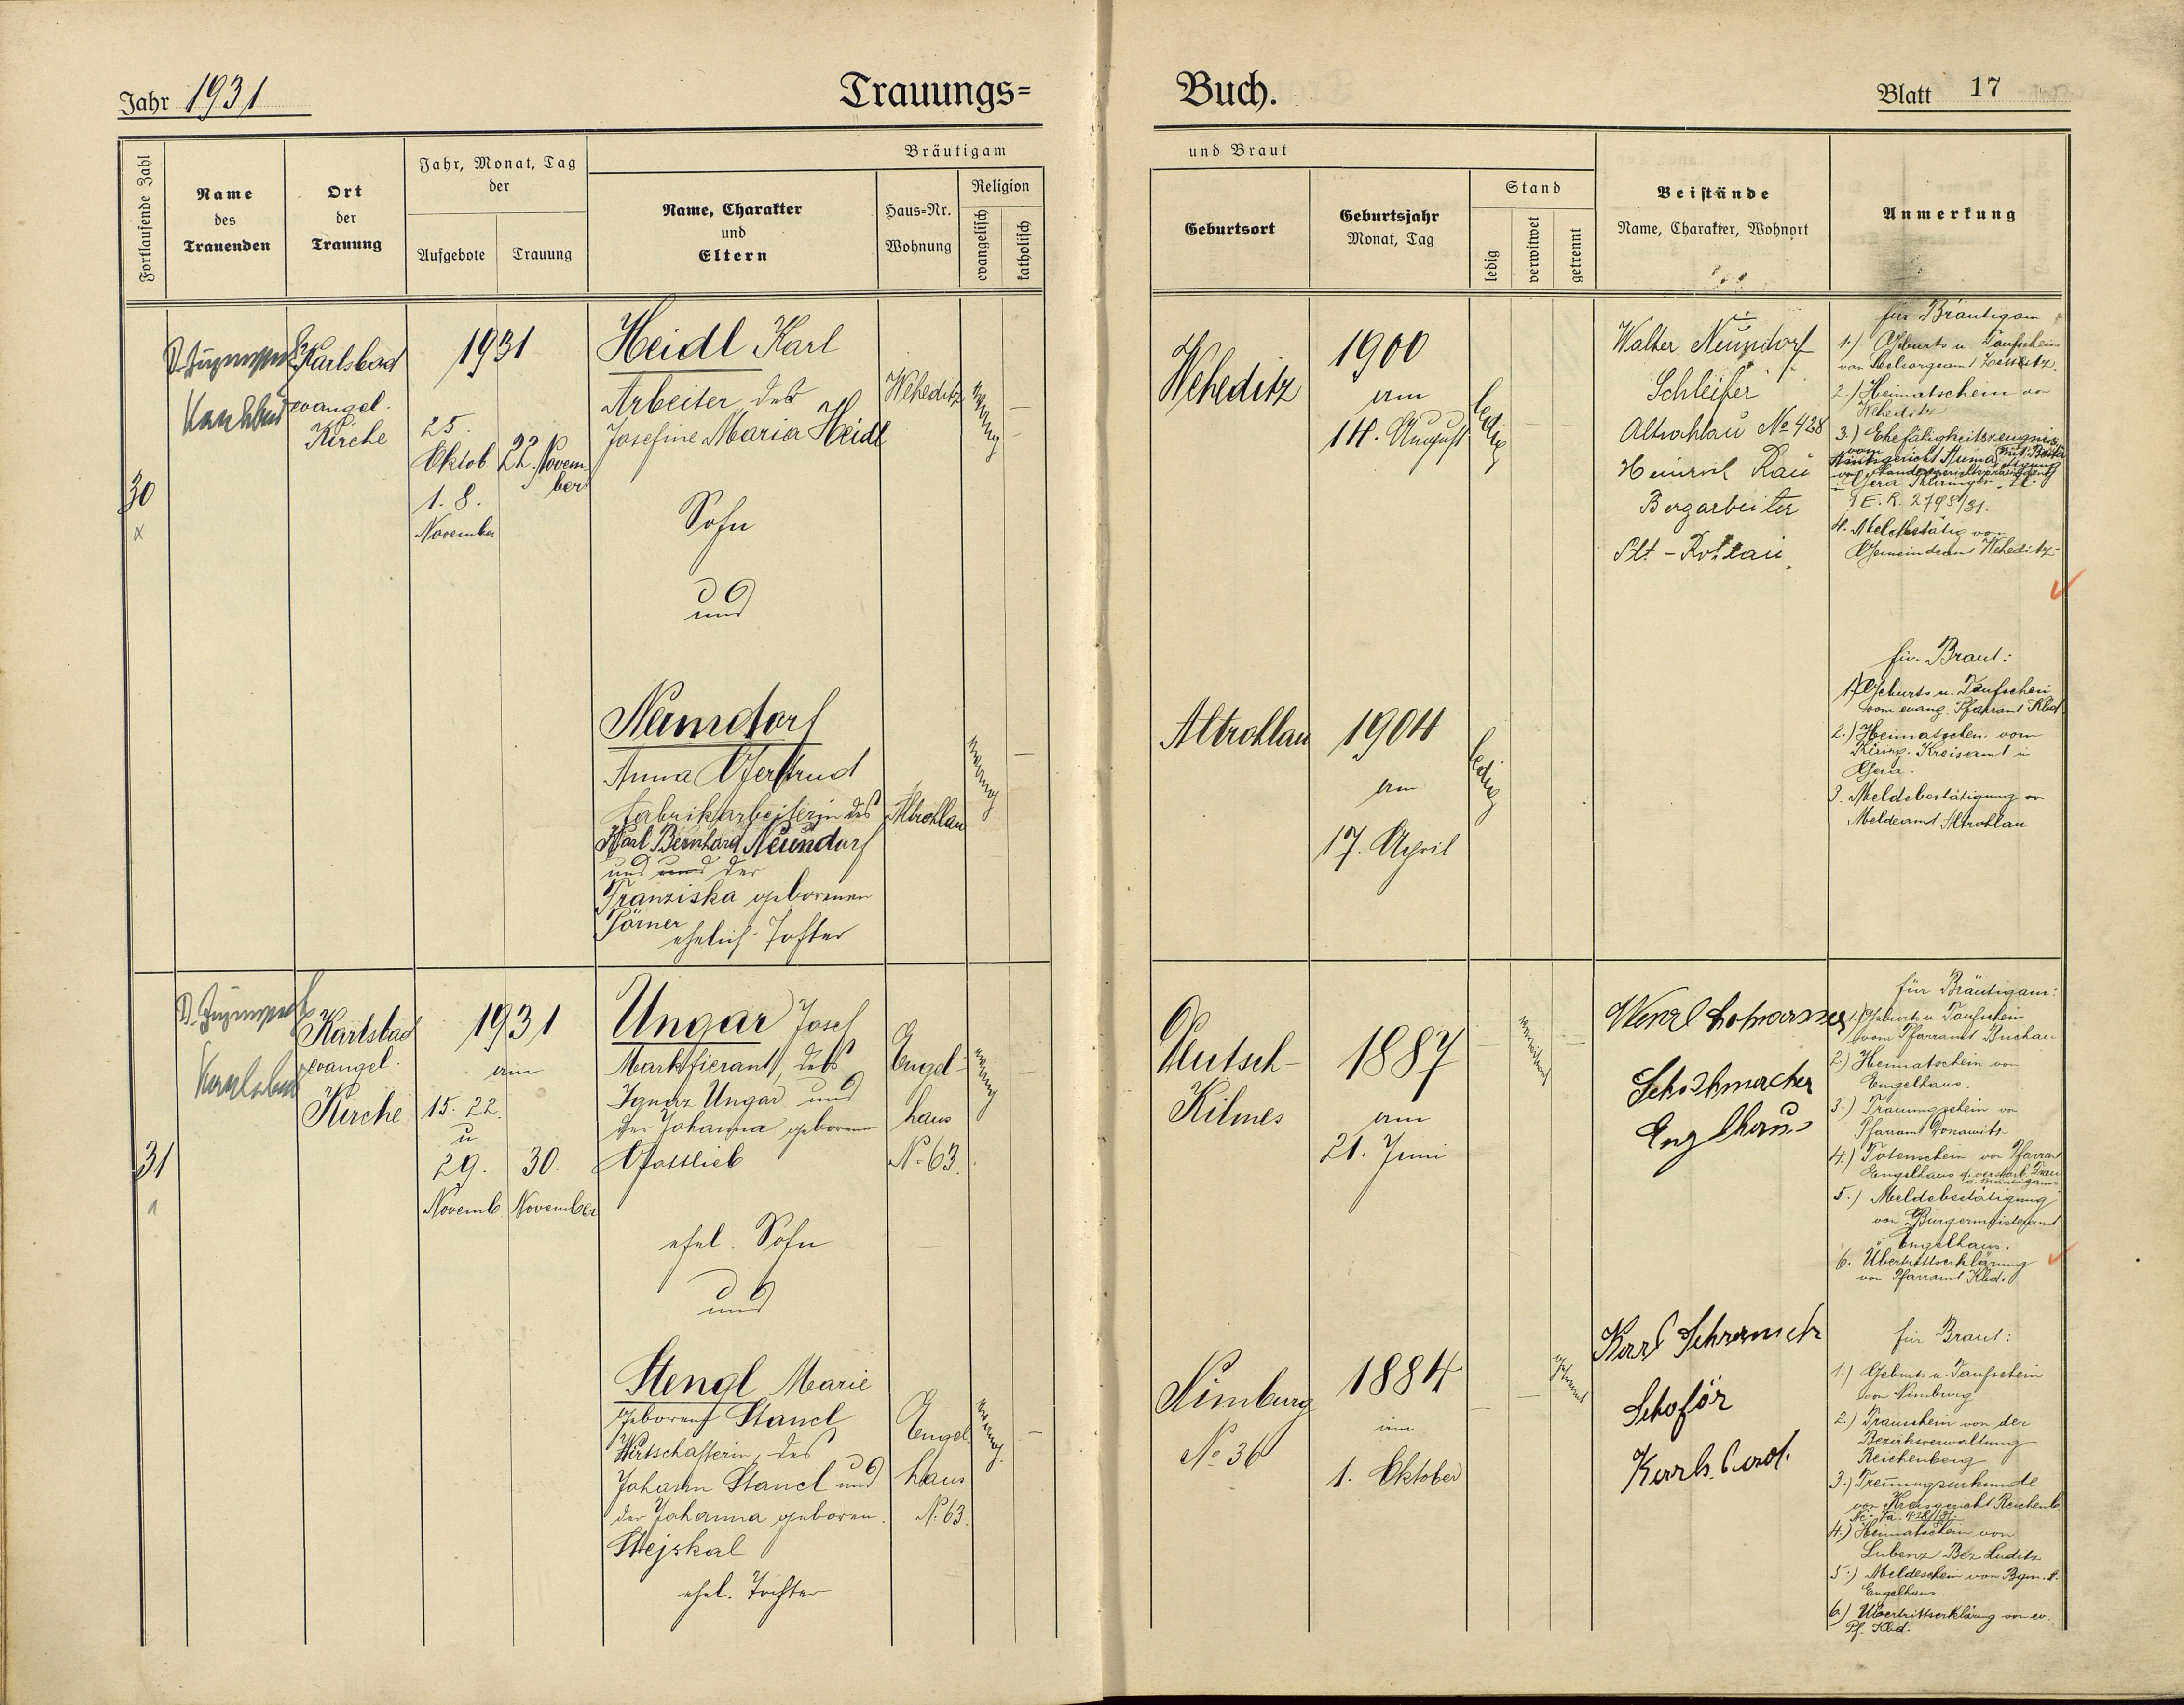 Jahr 1931
Trauungs=
Buch.
Blatt 17
Fortlaufende Zahl
Name
des
Trauenden
Ort
der
Trauung
Jahr, Monat, Tag
der
Aufgebote
Trauung
Bräutigam
Name, Charakter
und
Eltern
Haus=Nr.
Wohnung
Religion
evangelisch
katholisch
und Braut
Geburtsort
Geburtsjahr
Monat, Tag
Stand
ledig
verwitwet
getrennt
Beistände
Name, Charakter, Wohnort
Anmerkung
30
Karlsbad
evangel.
Kirche
1931
25.
Oktob.
1. 8.
November
22. Novem
ber
Heidl Karl
Arbeiter des
Josefine Maria Heidl
Sohn
und
Weheditz
evang
—
Neundorf
Anna Gertrud
Fabrikarbeiterin des
Karl Bernhard Neundorf
und und der
Franziska geborenen
Pörner
ehelich Tochter
Altrohlau
evang.
—
Weheditz
1900
am
14. August
ledig
Altrohlau
1904
am
17. April
ledig
Walter Neundorf
Schleifer
Altrohlau No 428
Heinrich Rau
Bergarbeiter
Alt-Rohlau
für Bräutigam
1.) Geburts u. Taufschein
von Seelsorgeamt Zettlitz.
2.) Heimatschein von
Weheditz
3.) Ehefähigkeitszeugnis
vom
I E. R. 2795/31.
4. Meldbestätig von
Gemeindeamt Weheditz
für Braut:
1.) Geburts u. Taufschein
vom evang. Pfarramt Kbd.
2.) Heimatschein vom
Thüring. Kreisamt in
Gera.
3. Meldebestätigung von
Meldeamt Altrohlau
31
Karlsbad
evangel.
Kirche
1931
am
15. 22.
u
29.
Novemb
30.
November
Ungar Josef
Marktfierant, des
Ignaz Ungar und
der Johanna geborenen
Gottlieb
ehel. Sohn
und
Engel-
haus
No 63.
evang
—
Stengl Marie
geborene Stancl
Wirtschafterin, des
Johann Stancl und
der Johanna geboren.
Stejskal
ehel. Tochter
Engel
haus
No 63.
evang.
—
Deutsch-
Kilmes
1887
am
21. Juni
verwitwet
Nimburg
No 36
1884
am
1. Oktober
getrennt
Schuhmacher
Englhaus
Karl
Schoför
Karlsbad.
für Bräutigam:
1.) Geburts u. Taufschein
vom Pfarramt Buchau
2.) Heimatschein von
Engelhaus.
3.) Trauungschein von
Pfarramt Donawitz
4.) Totenschein von Pfarramt
Engelhaus d. verstorb. Frau
d. Bräutigams
5.) Meldebestätigung
von Bürgermeisteramt
Engelhaus.
6. Übertrittserklärung
von Pfarramt Kbd.
für Braut:
1.) Geburts u. Taufschein
von Nimburg
2.) Trauschein von der
Bezirksverwaltung
Reichenberg
3.) Trennungsurkunde
von Kreisgericht Reichenb.
4.) Heimatschein von
Lubenz Bez Luditz
5.) Meldeschein von Bgm. A.
Engelhaus.
6.) Übertrittserklärung von ev.
Pf. Kbd.